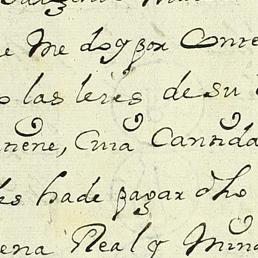 e Me doy por Conte
o las leies de su
tiene, Cuia Cantida
es hade pagar dho
ena Real y Mina